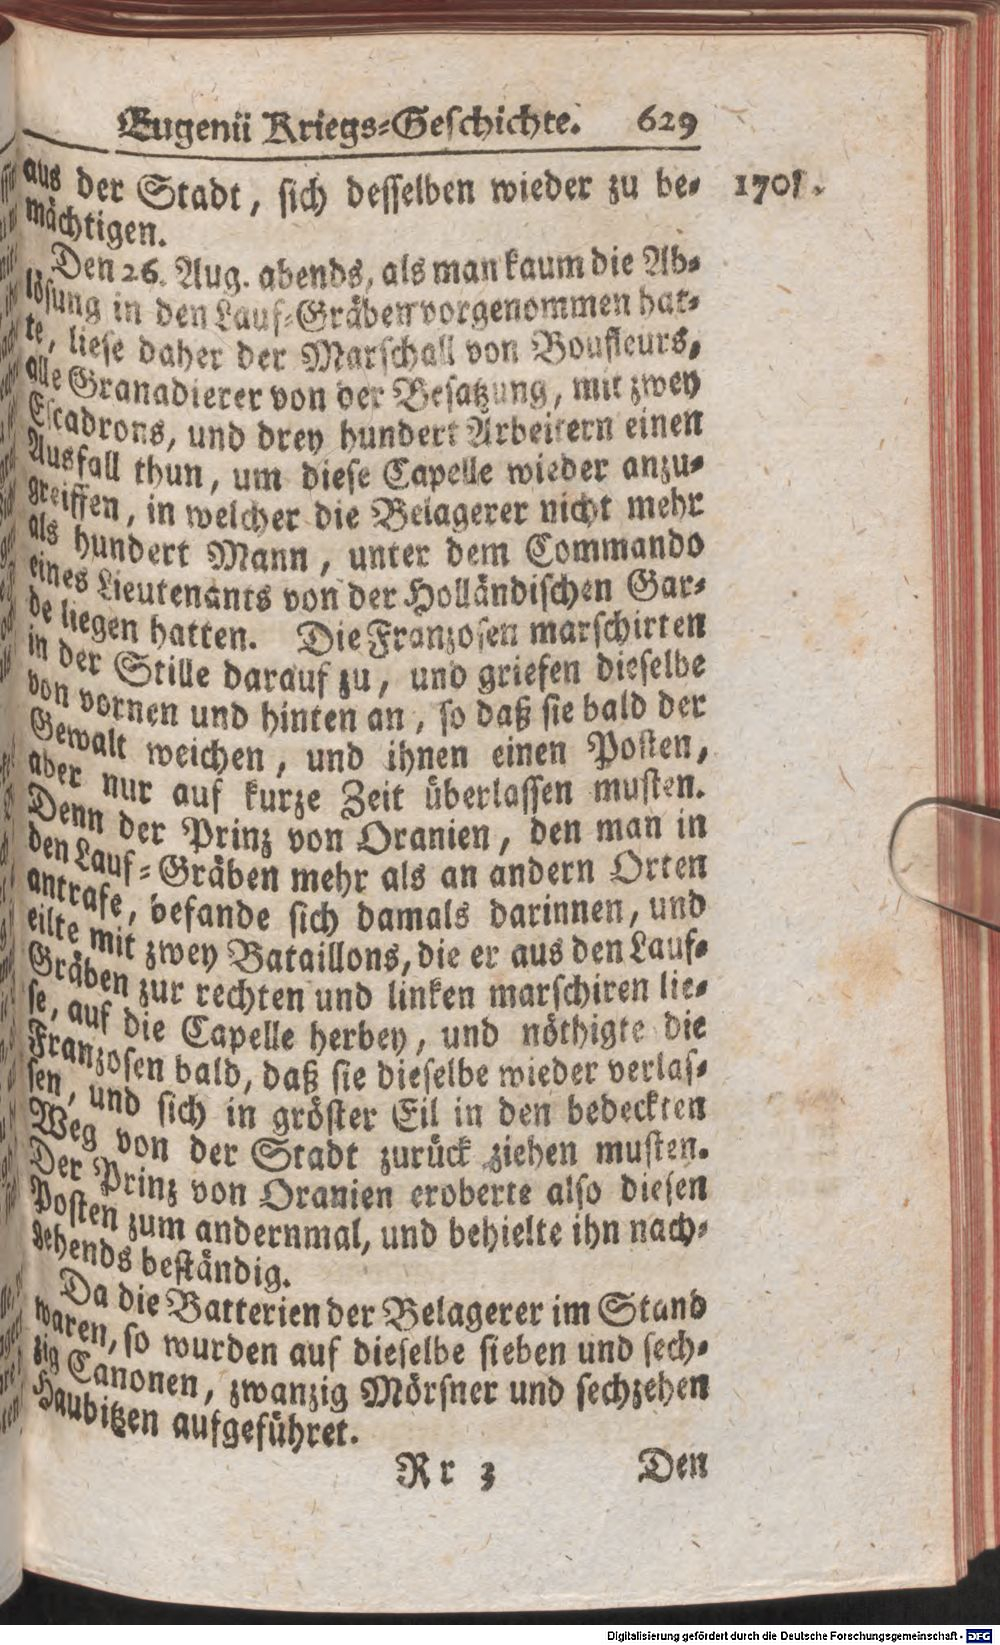 Eugenii Kriegs=Geschichte. 629
aus der Stadt, sich desselben wieder zu be= 1708.
mächtigen.
Den 26. Aug. abends, als man kaum die Ab=
lösung in den Lauf=Gräben vorgenommen hat=
te, liese daher der Marschall von Boufleurs,
alle Granadierer von der Besatzung, mit zwey
Escadrons, und drey hundert Arbeitern einen
Ausfall thun, um diese Capelle wieder anzu=
greiffen, in welcher die Belagerer nicht mehr
als hundert Mann, unter dem Commando
eines Lieutenants von der Holländischen Gar=
de liegen hatten. Die Franzosen marschirten
in der Stille darauf zu, und griefen dieselbe
von vornen und hinten an, so daß sie bald der
Gewalt weichen, und ihnen einen Posten,
aber nur auf kurze Zeit überlassen musten.
Denn der Prinz von Oranien, den man in
den Lauf=Gräben mehr als an andern Orten
antrafe, befande sich damals darinnen, und
eilte mit zwey Bataillons, die er aus den Lauf=
Gräben zur rechten und linken marschiren lie=
se, auf die Capelle herbey, und nöthigte die
Franzosen bald, daß sie dieselbe wieder verlas=
sen, und sich in gröster Eil in den bedeckten
Weg von der Stadt zurück ziehen musten.
Der Prinz von Oranien eroberte also diesen
Posten zum andernmal, und behielte ihn nach=
gehends beständig.
Da die Batterien der Belagerer im Stand
waren, so wurden auf dieselbe sieben und sech=
zig Canonen, zwanzig Mörsner und sechzehen
Haubitzen aufgeführet.
Rr 3 Den
Digitalisierung gefördert durch die Deutsche Forschungsgemeinschaft - DFG